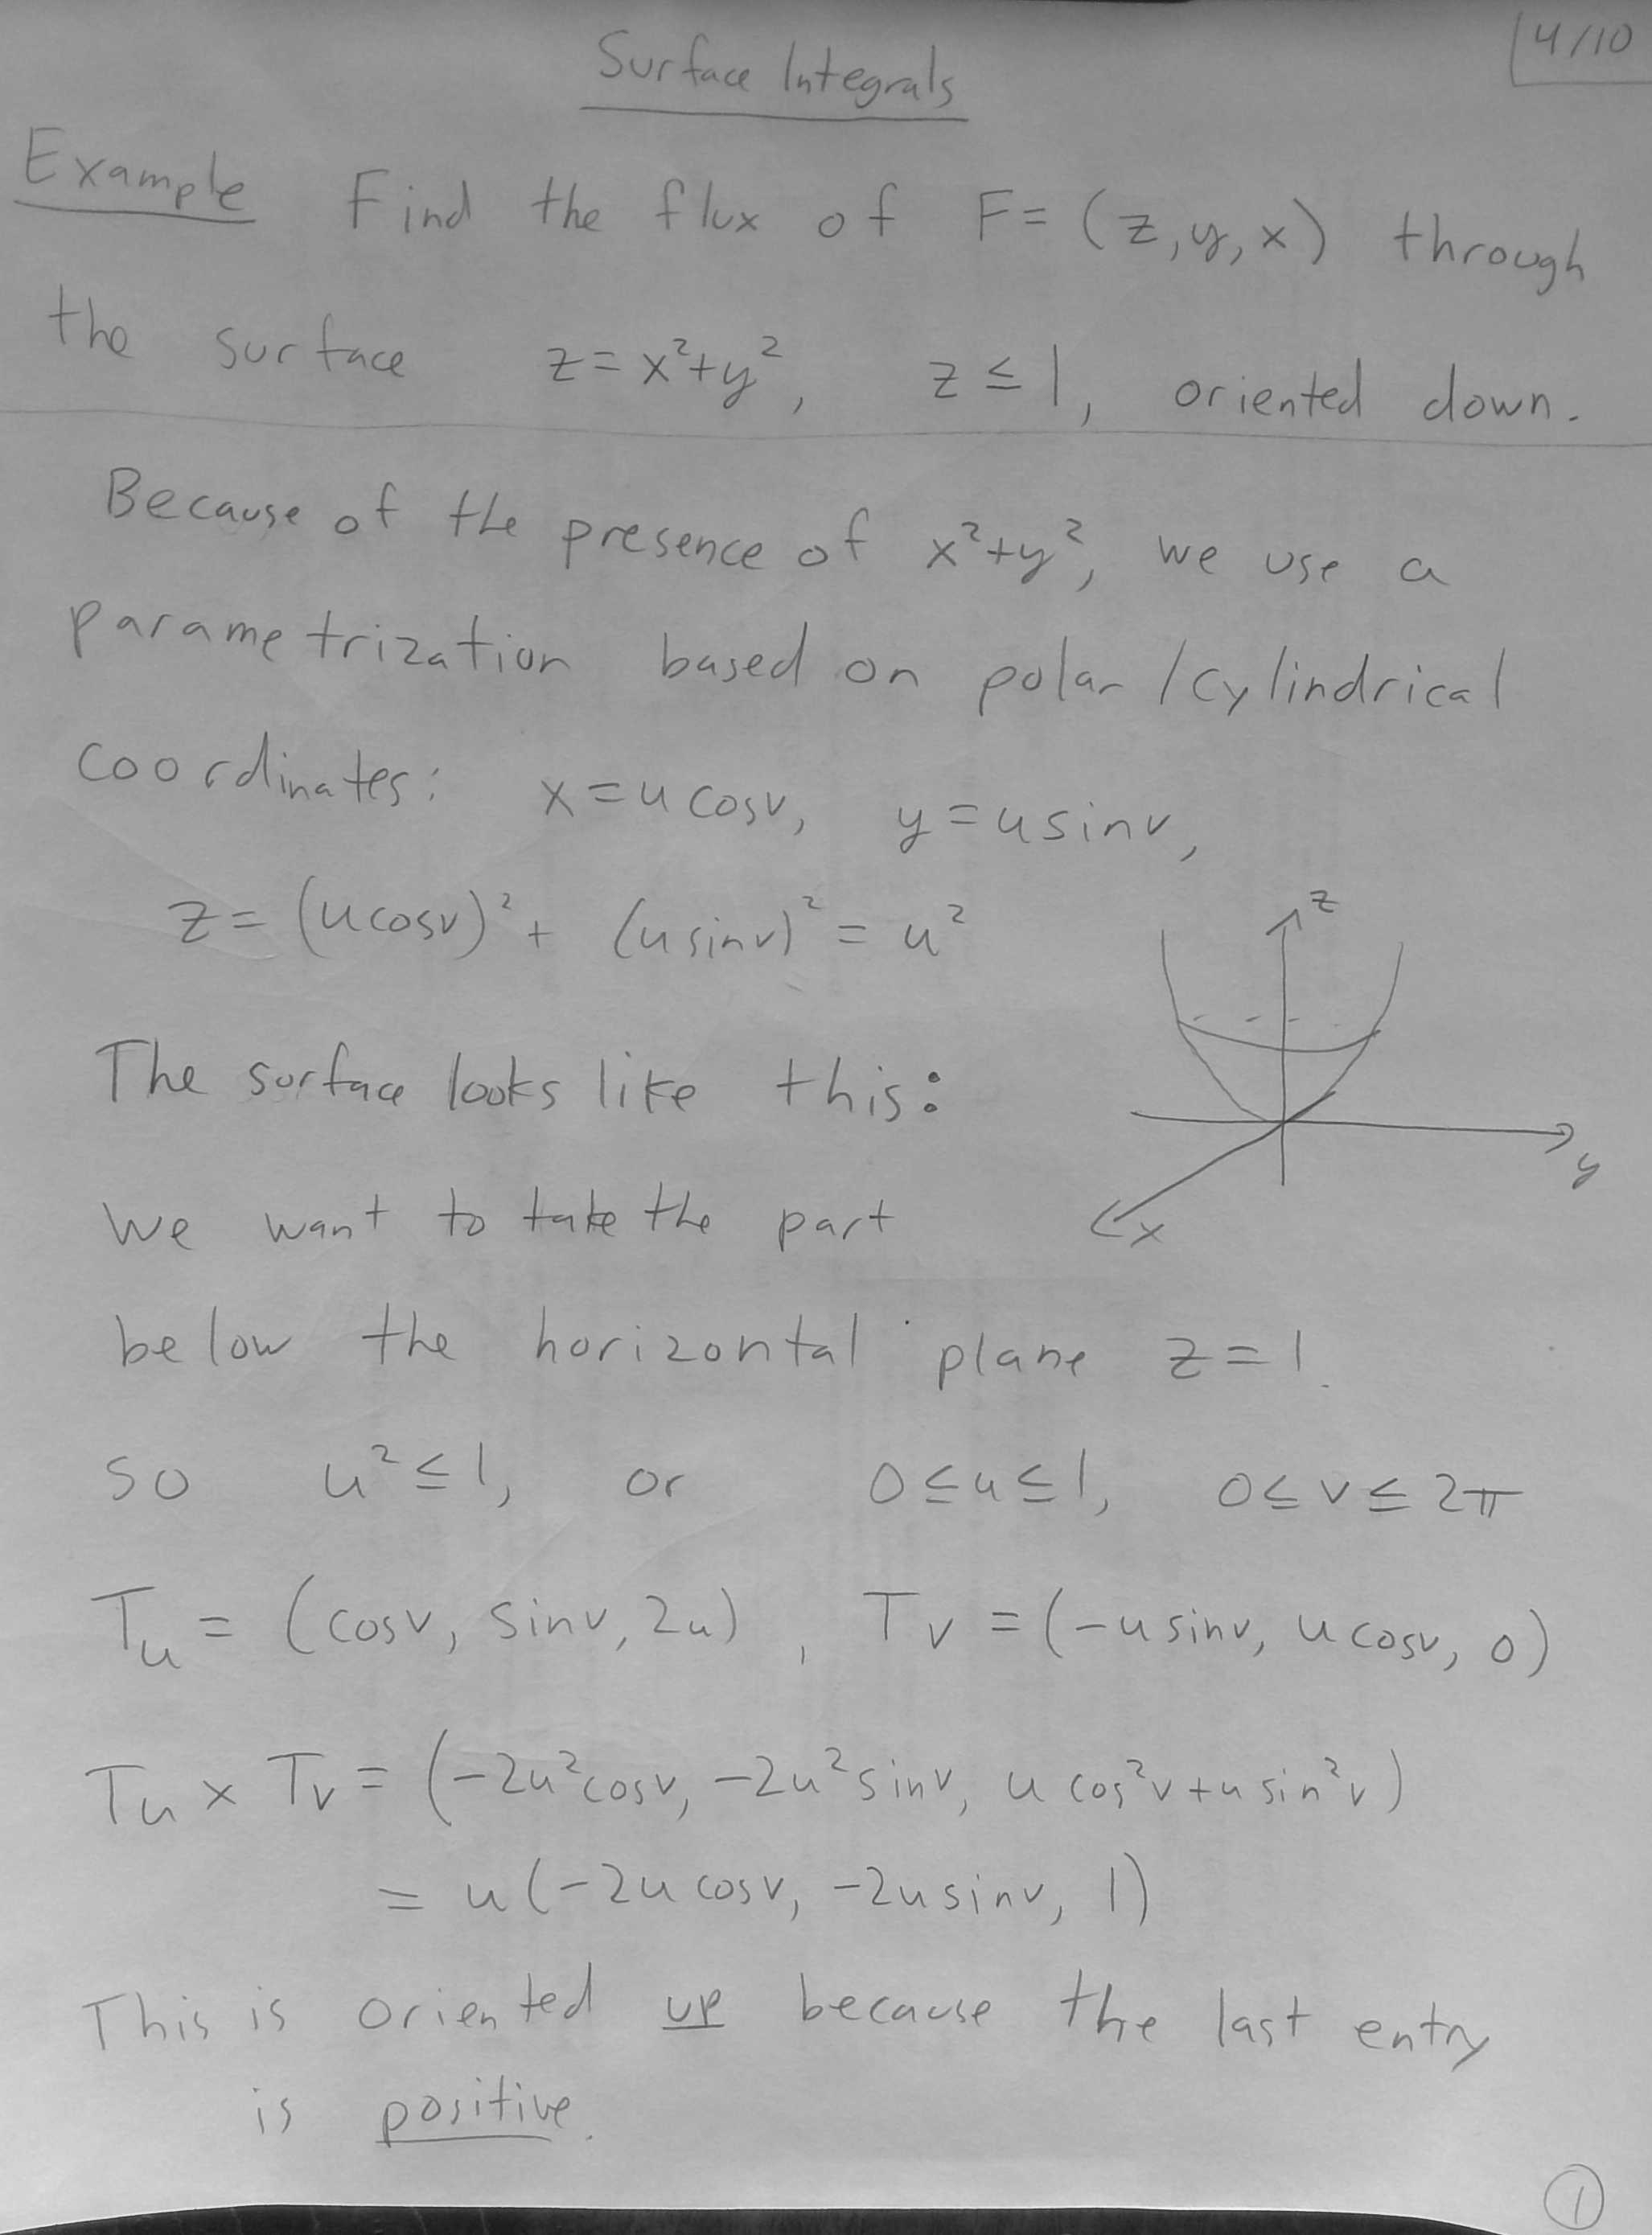 4/10
Surface Integrals
Example Find the flux of F=(z,y,x) through
the surface z=x²+y², z≤1, oriented down.
Because of the presence of x²+y², we use a
parametrization based on polar/cylindrical
coordinates: x=ucosv, y=usinv,
z=(ucosv)²+(usinv)²=u²
z
The surface looks like this:
y
We want to take the part
x
below the horizontal plane z=1.
so u²≤1, or 0≤u≤1, 0≤v≤2π
Tu=(cosv, sinv, 2u), Tv=(-usinv, ucosv, 0)
Tu×Tv=(-2u²cosv, -2u²sinv, ucos²v+usin²v)
=u(-2ucosv, -2usinv, 1)
This is oriented up because the last entry
is positive.
1